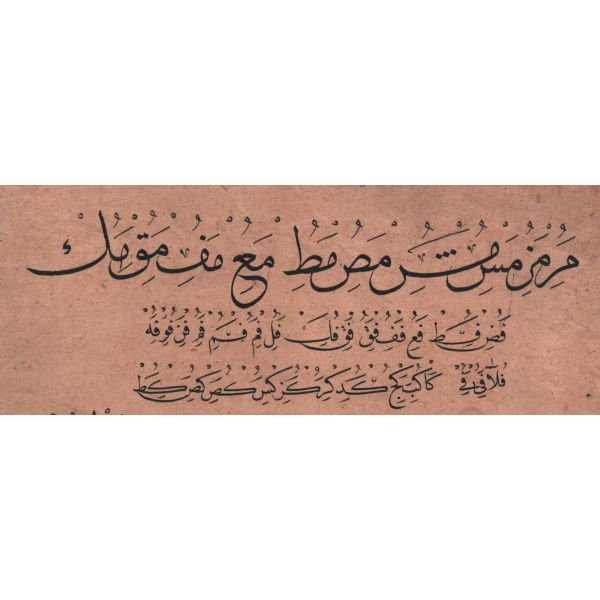 مر مز مس مش مص مط مع مف مق مك
فص فط فع فف فق فك فل فم فم فم فن فو فه
فلا فى فى كا كب كج كد كر كز كس كص كص كط